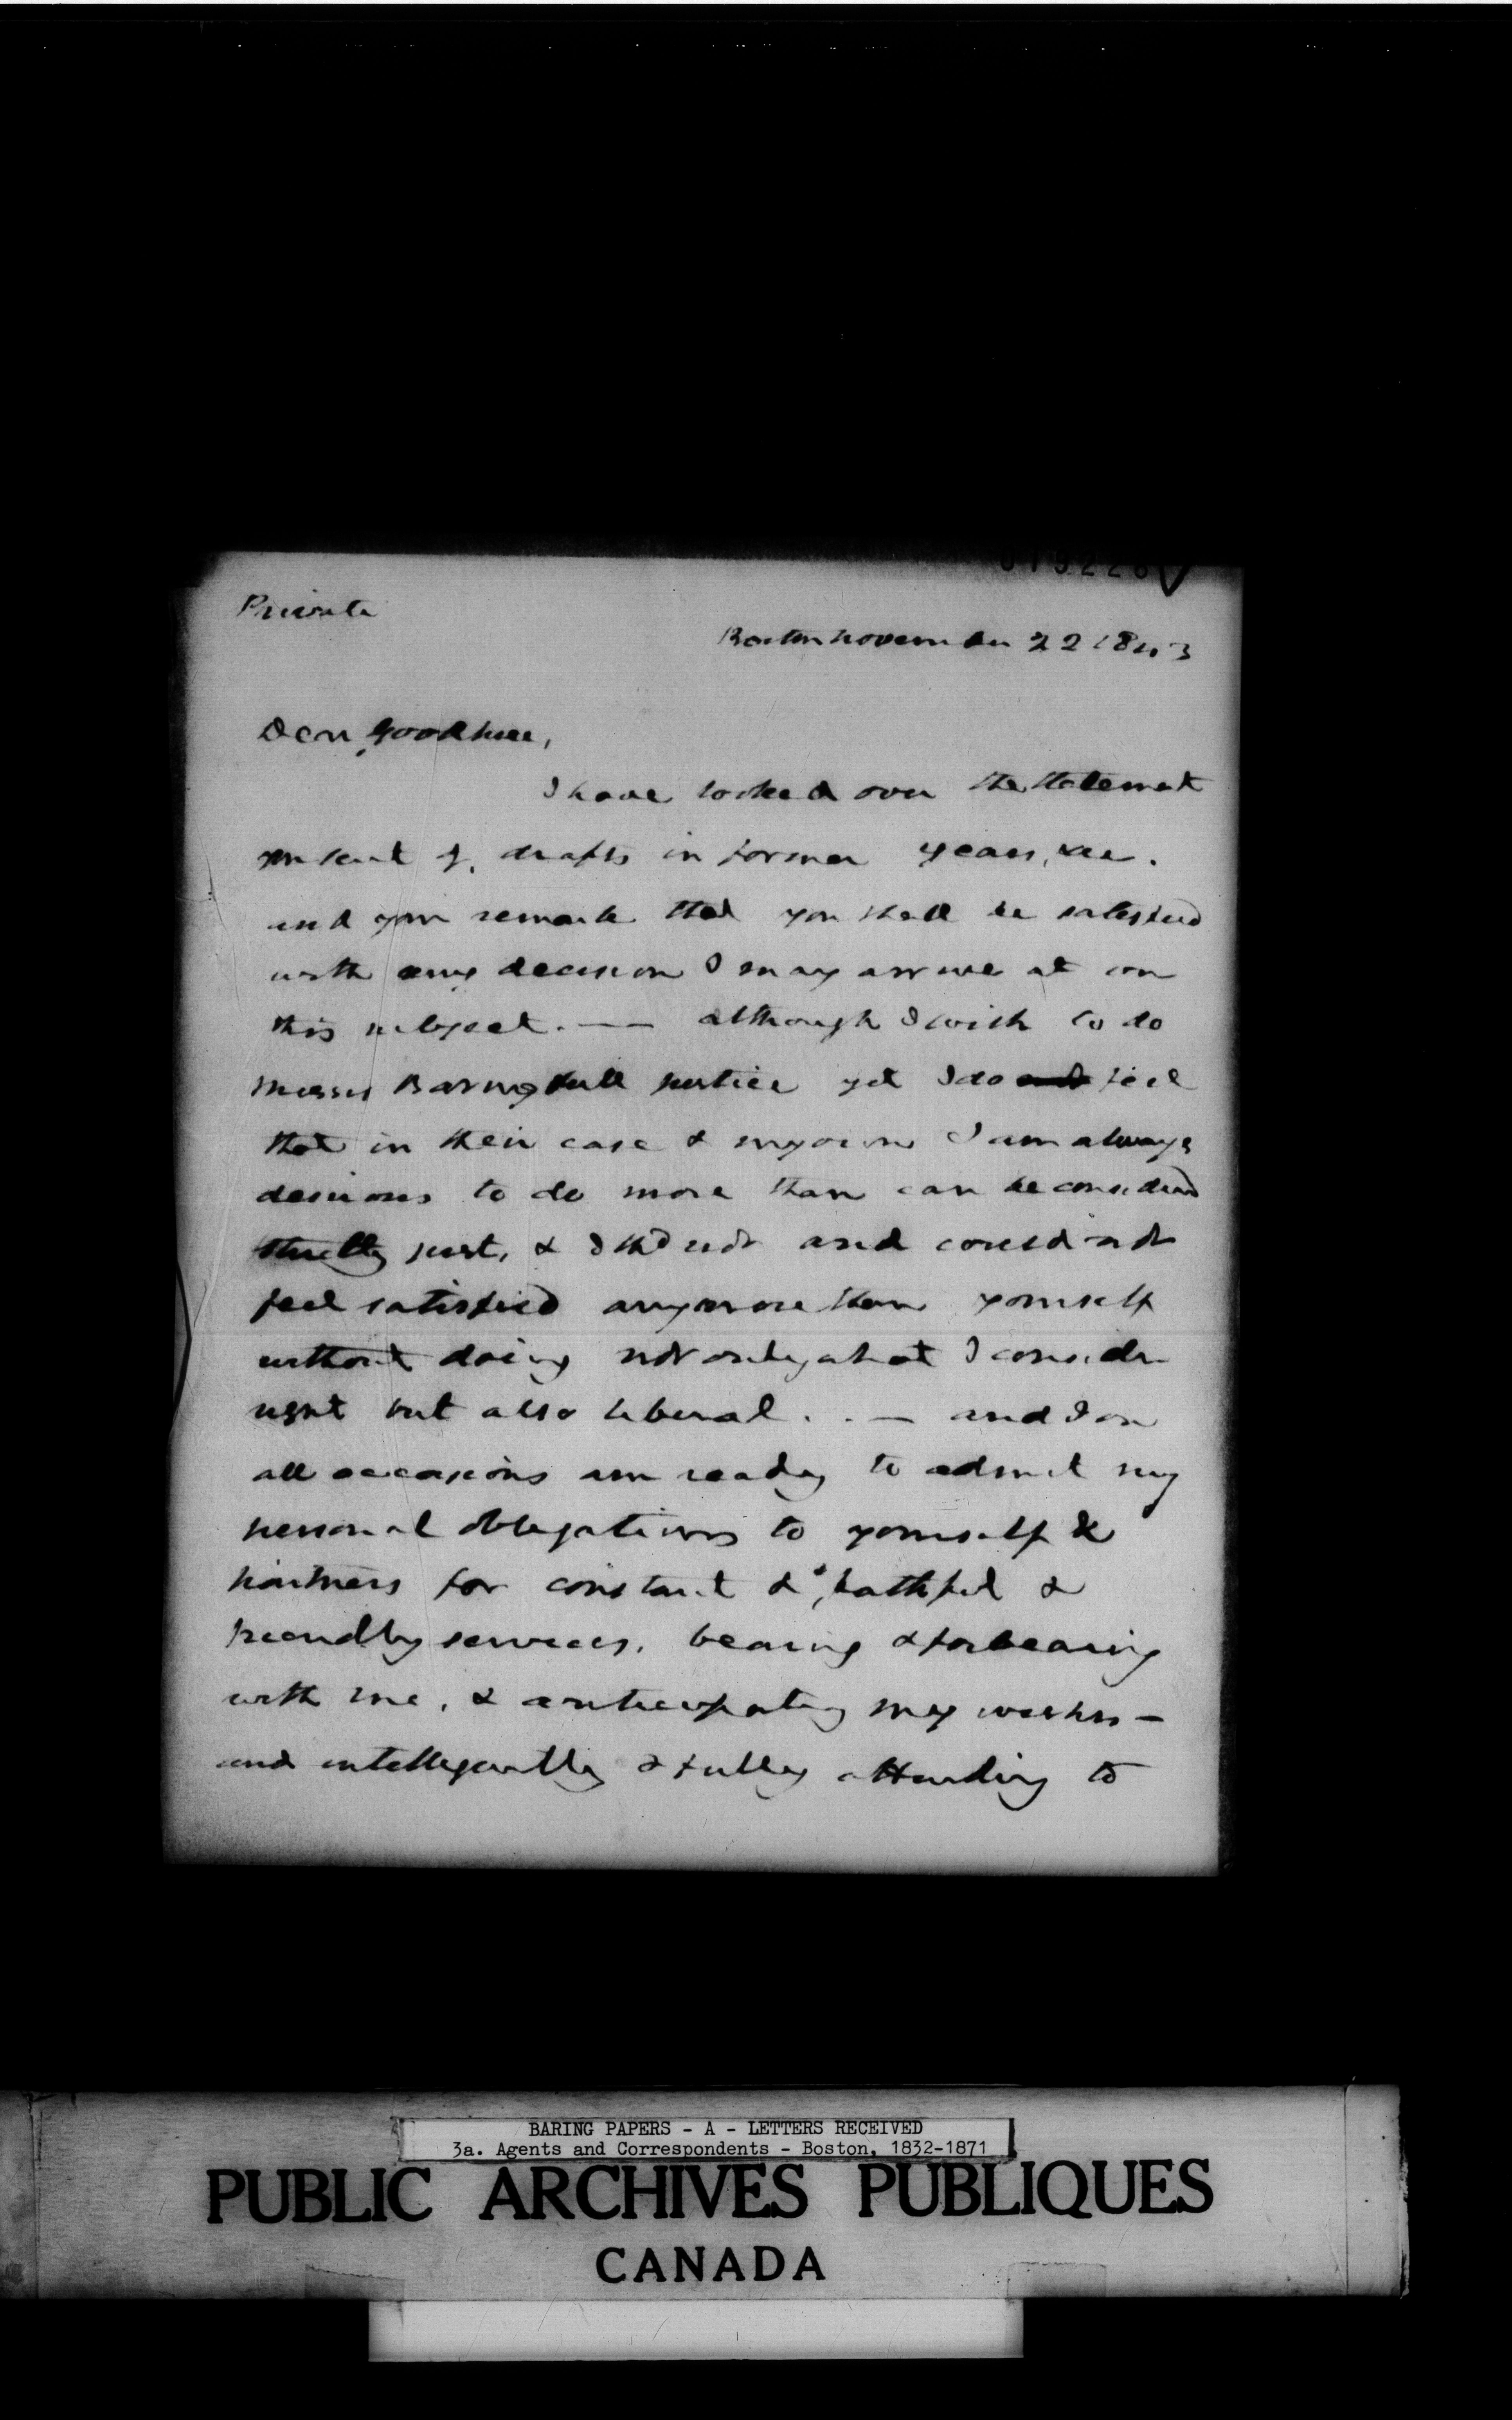 Private
Boston November 22 1843
Dear Goodhue,
I have looked over the statement
you sent of drafts in former years, &c.
and your remark that you shall be satisfied
with any decision I may arrive at on
this subject. — although I wish to do
Messrs Barings full justice yet I do feel
that in their case & my own I am always
desirous to do more than can be considered
strictly just, & I shd not and could not
feel satisfied any more than yourself
without doing not only what I consider
right but also liberal. — and I on
all occasions am ready to admit my
personal obligations to yourself &
partners for constant & faithful &
friendly services, bearing & forbearing
with me, & anticipating my wishes —
and intelligently & fully attending to
BARING PAPERS - A - LETTERS RECEIVED
3a. Agents and Correspondents - Boston, 1832-1871
PUBLIC ARCHIVES PUBLIQUES
CANADA